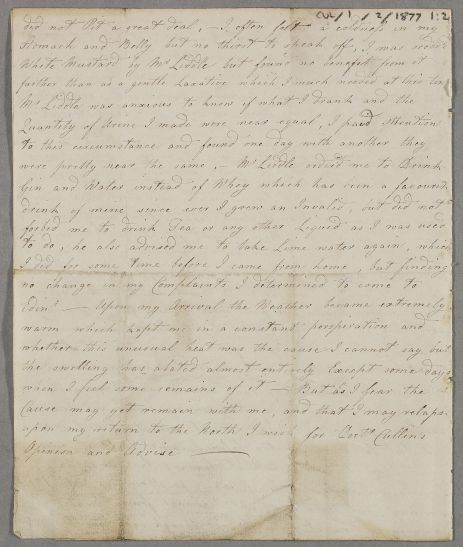 CUL/1/2/1877 1:2
did not Pit a great deal, — I often felt a coldness in my
Stomach and Belly but no thirst to speak off, I was
White Mustard by Mr Liddle but found no benefit from it
further than as a gentle Laxative which I much needed at this time
Mr Liddle was anxious to know if what I drank and the
Quantity of Urine I made were near equal, I paid Attention
to this circumstance and found one day with another they
were pretty near the same, — Mr Liddle ordered me to Drink
Gin and Water instead of Whey which has been a favourite
drink of mine since ever I grew an Invalid, but did not
forbid me to drink Tea or any other Liquid as I was used
to do, he also advised me to take Lime water again, which
I did for some time before I came from home, but finding
no change in my Complaints I determined to come to
Edinr — Upon my Arrival the Weather became extremely
warm which kept me in a constant perspiration and
whether this unusual heat was the cause I cannot say but
the swelling has abated almost entirely Except some days
when I feel some remains of it — But as I fear the
Cause may yet remain with me, and that I may relapse
upon my return to the North I wish for Doctr Cullen's
Openion and Advise —